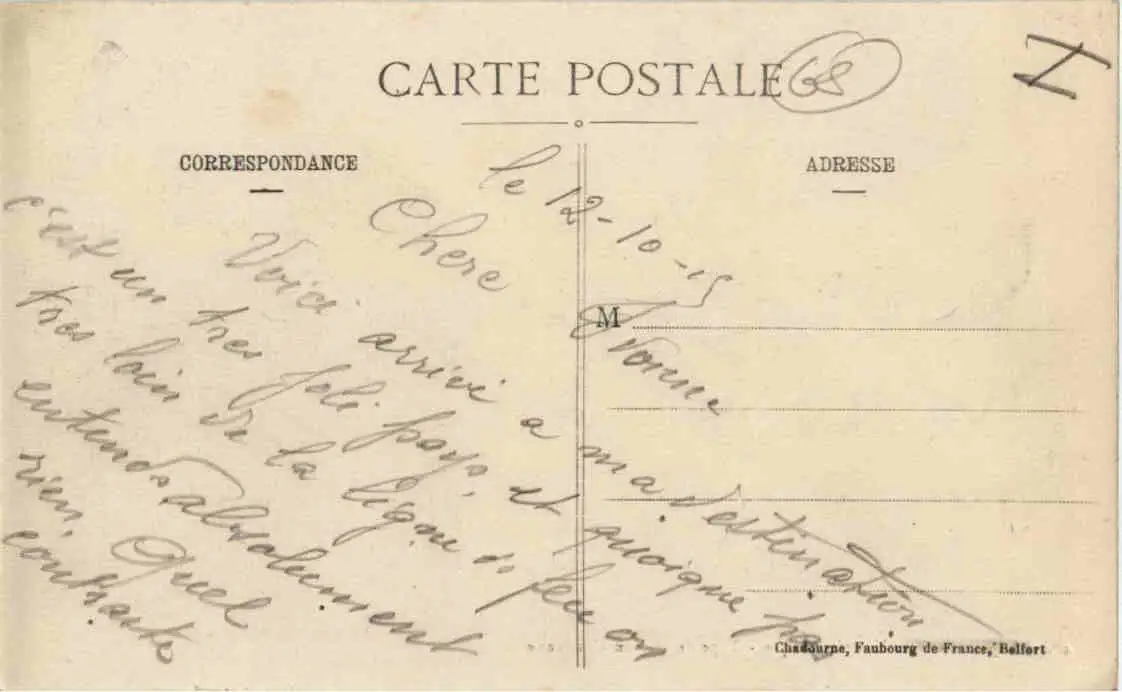 CARTE POSTALE
68
H
CORRESPONDANCE
ADRESSE
M
le 12-10-15
Chere Yvonne
Voici arrivé a ma destination
c'est un tres joli pays, et quoique pas
tres loin de la ligne de feu on
entends absolument
rien. Quel
contraste
Chadourne, Faubourg de France, Belfort